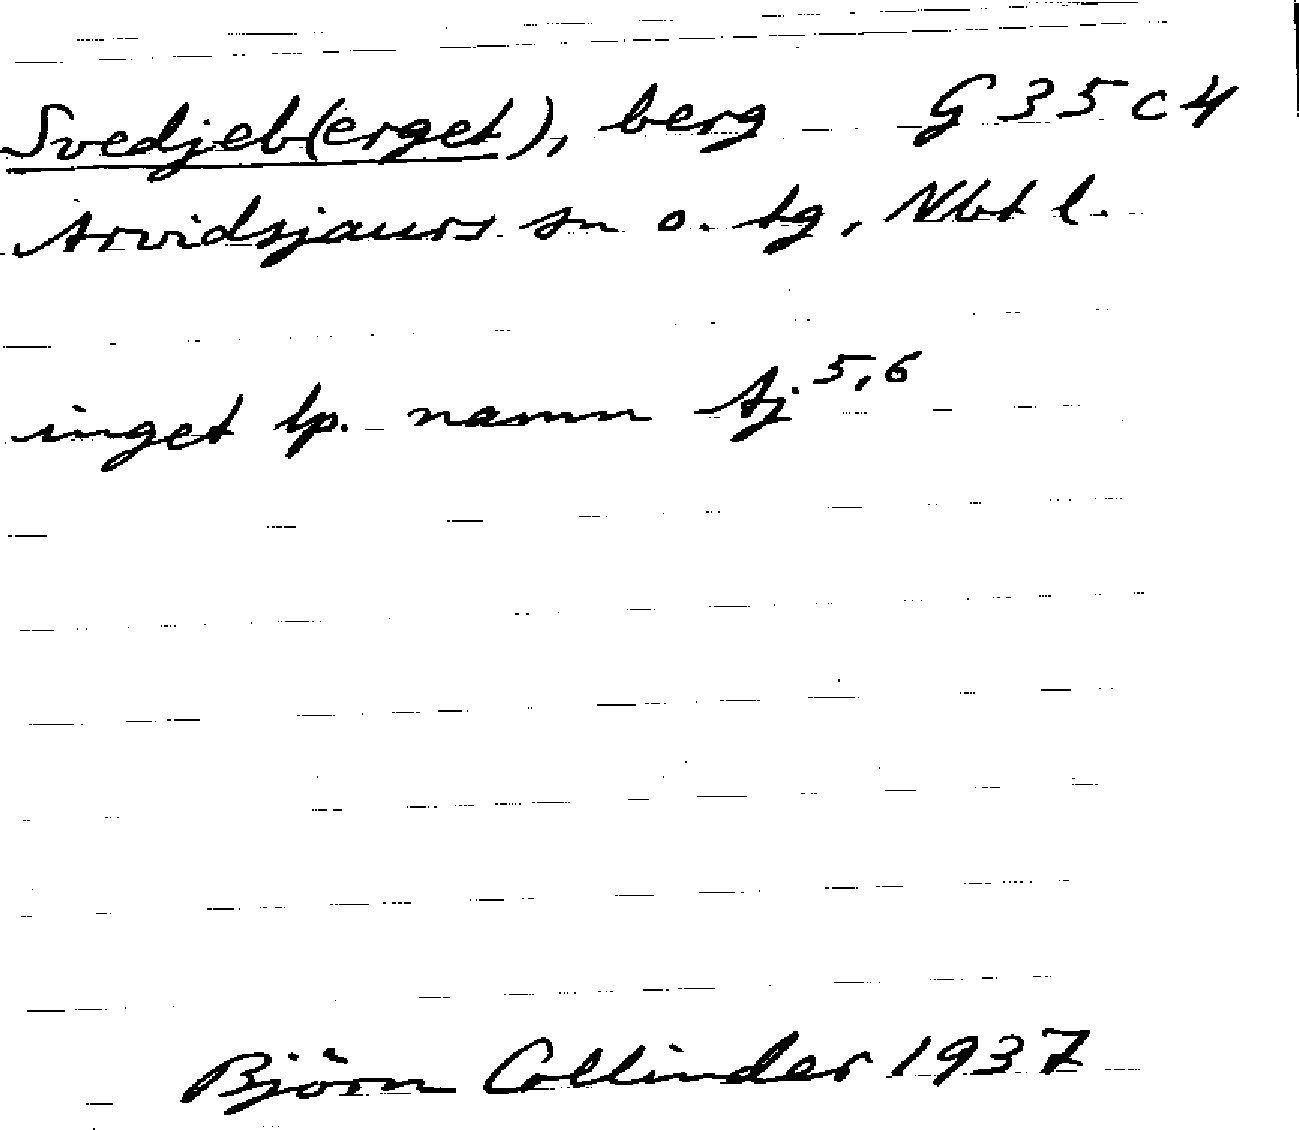 Svedjeb(erget), berg G 35 c 4
Arvidsjaurs sn o. tg, Nbt l.
inget lp. namn Aj. 5,6
Björn Collinder 1937